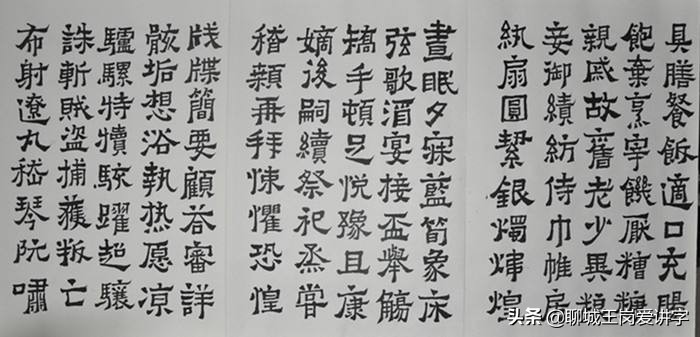 具膳餐飯適口充腸
飽棄烹宰饑厭糟糠
親戚故舊老少異糧
妾御績紡侍巾帷房
紈扇圓絜銀燭煒煌
晝眠夕寐藍筍象床
弦歌酒宴接盃舉觴
矯手頓足悅豫且康
嫡後嗣續祭祀烝嘗
稽顙再拜悚懼恐惶
牋牒簡要顧答審詳
骸垢想浴執热愿凉
驢騾特犢駭躍超驤
誅斬賊盜捕獲叛亡
布射遼丸嵇琴阮嘯
头条 @聊城王岗爱讲字